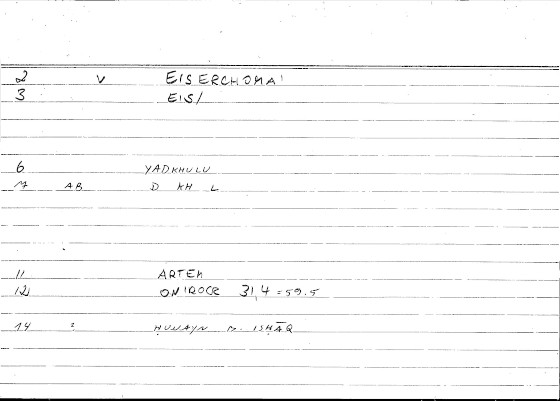 2 v EISERCHOMAI
3 EIS/
6 YADKHULU
7 AB D KH L
11 ARTEM
12 ONIROCR 31,4 = 59.5
14 ḤUNAYN B. ISḤĀQ